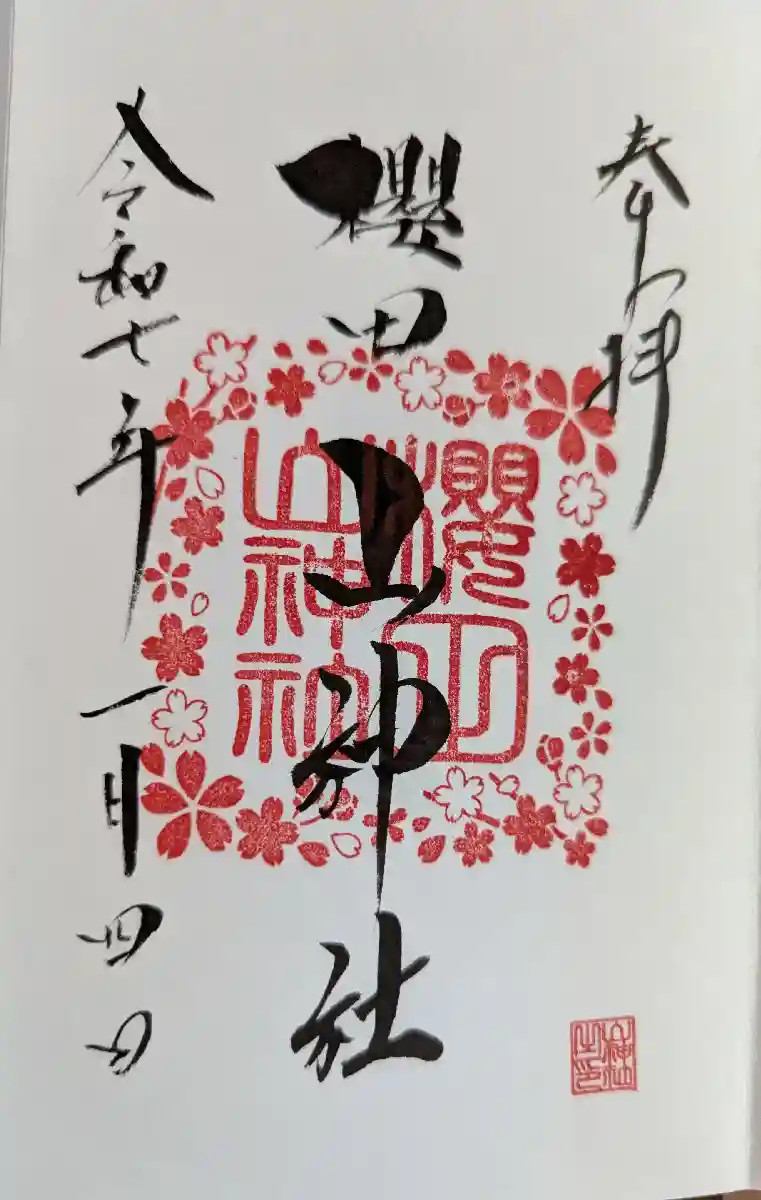 奉拝
櫻田山神社
櫻田
山神社
令和七年一月四日